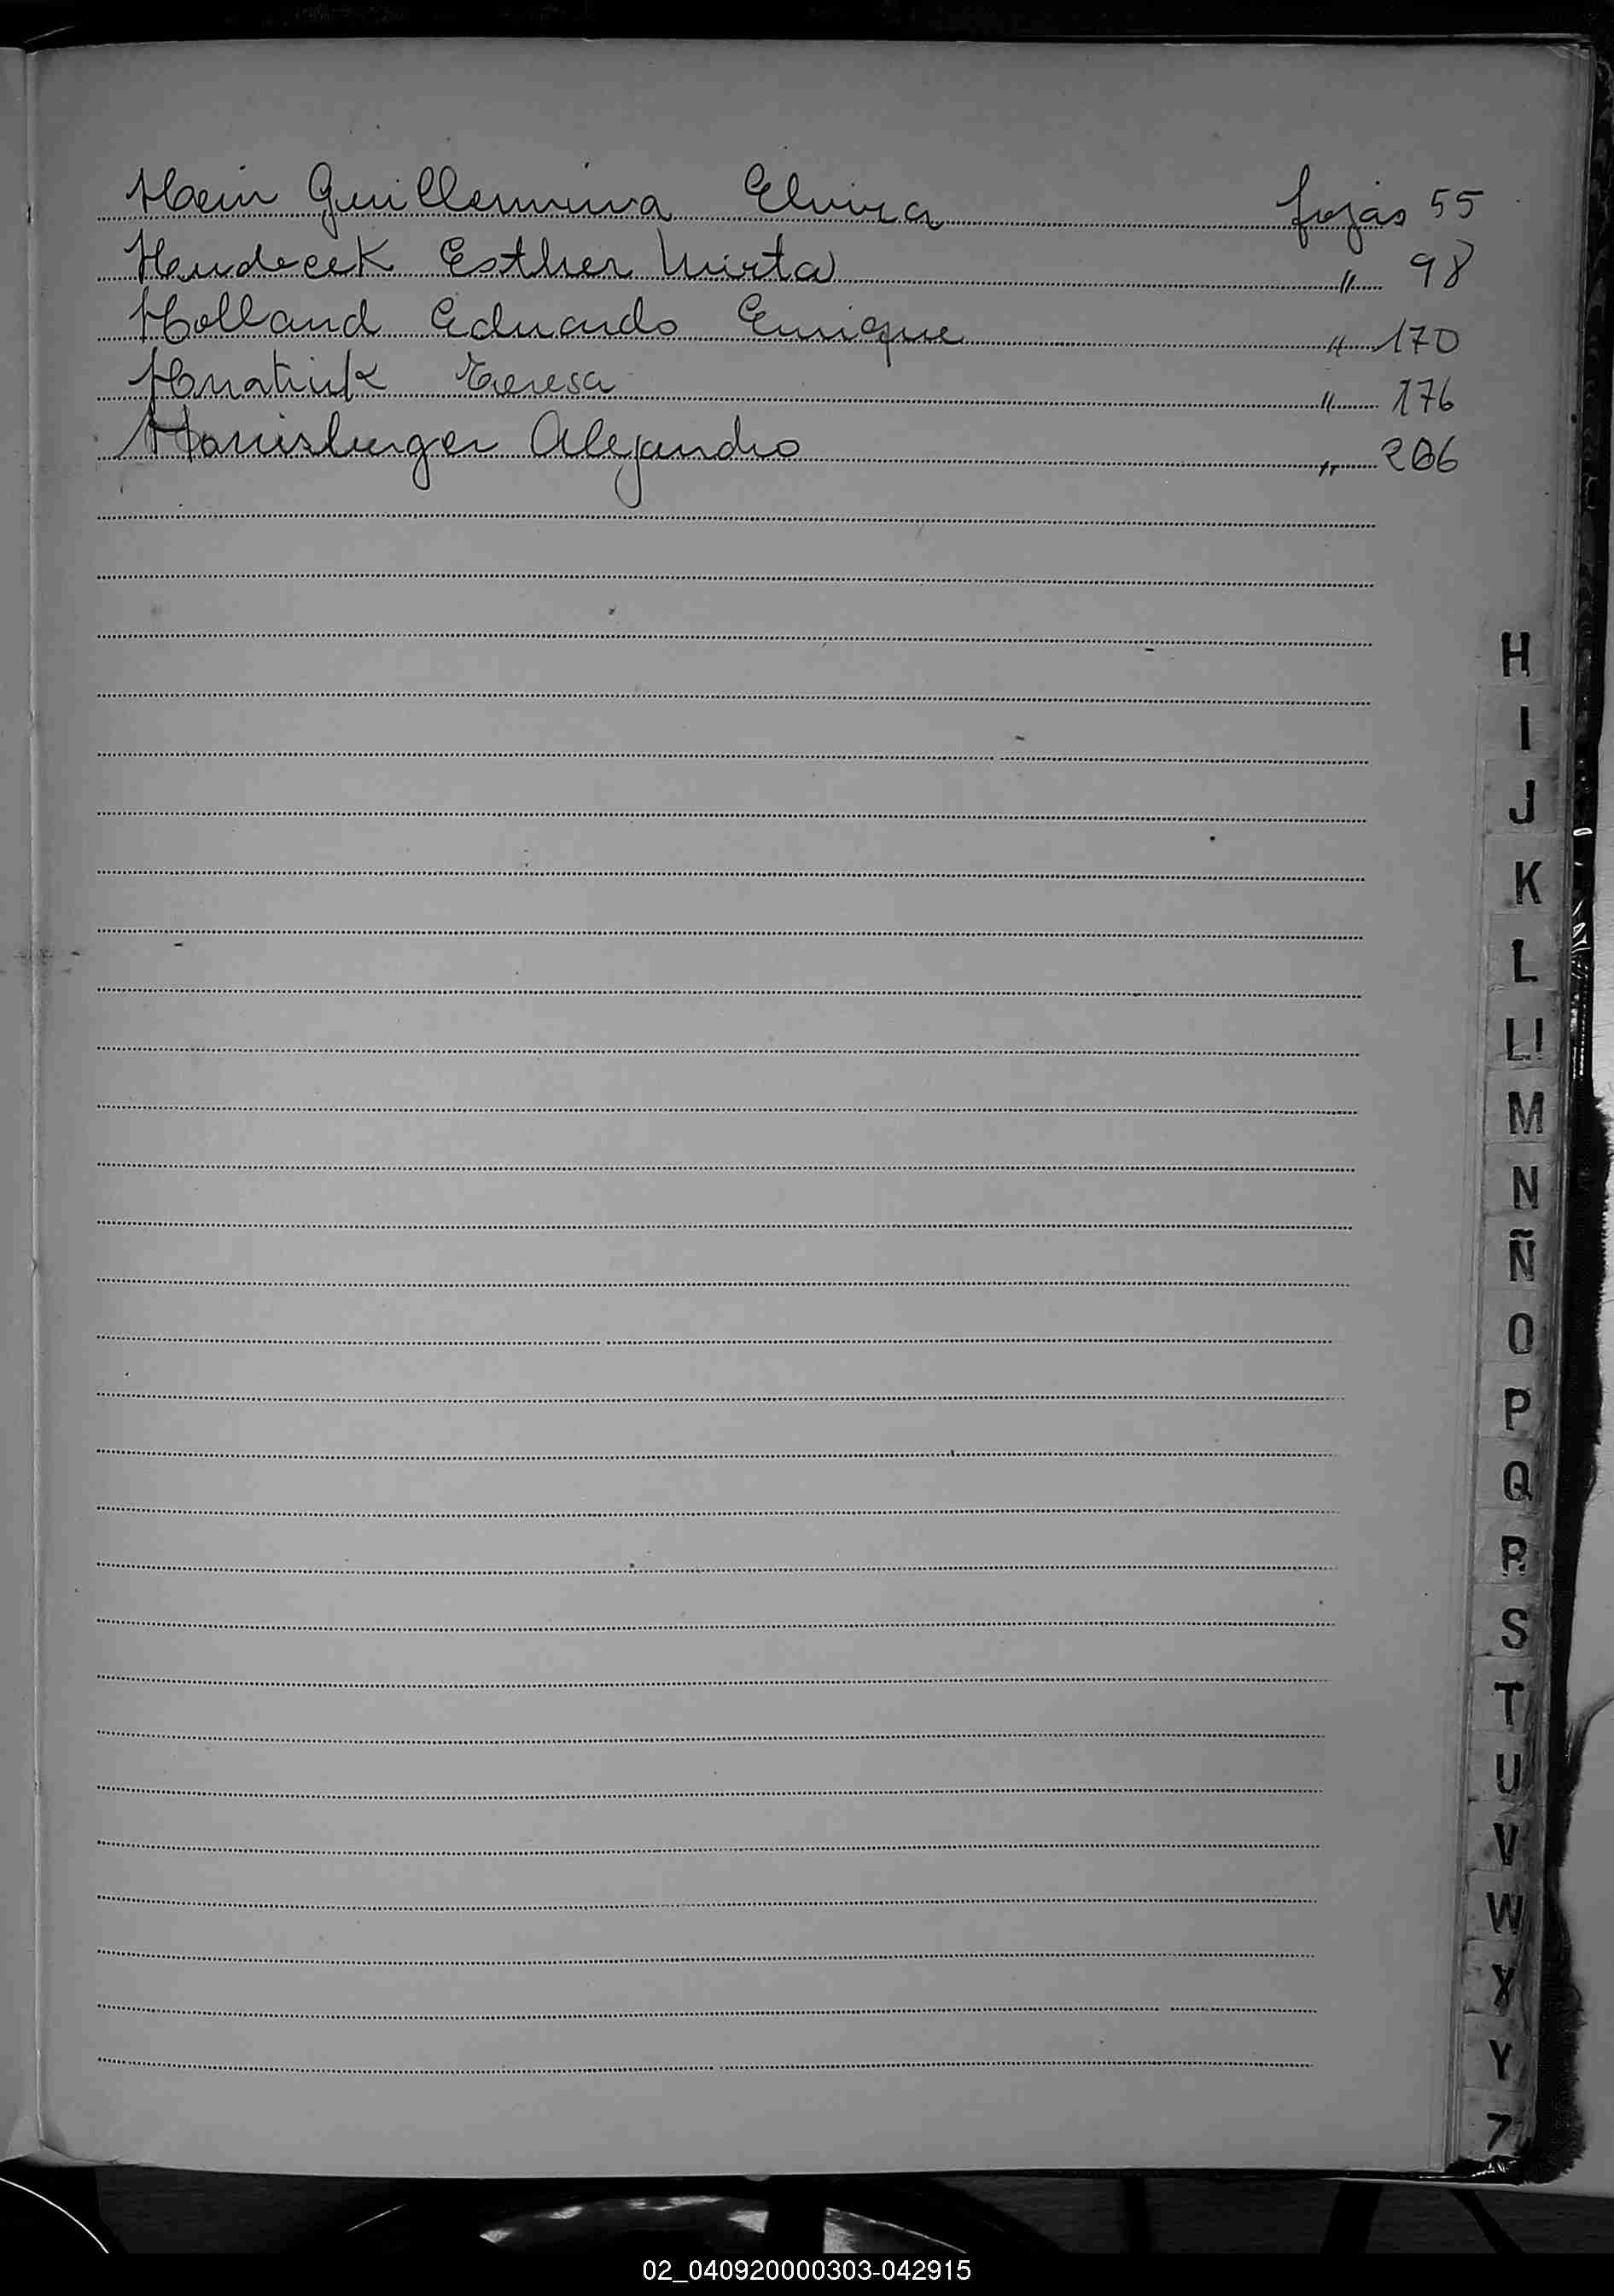 Hein Guillermina Elvira fojas 55
Hendecek Esther Mirta " 98
Holland Eduardo Enrique " 170
Hnatiuk Teresa " 176
Alejandro " 206
H
I
J
K
L
Ll
M
N
Ñ
O
P
Q
R
S
T
U
V
W
X
Y
Z
02_040920000303-042915